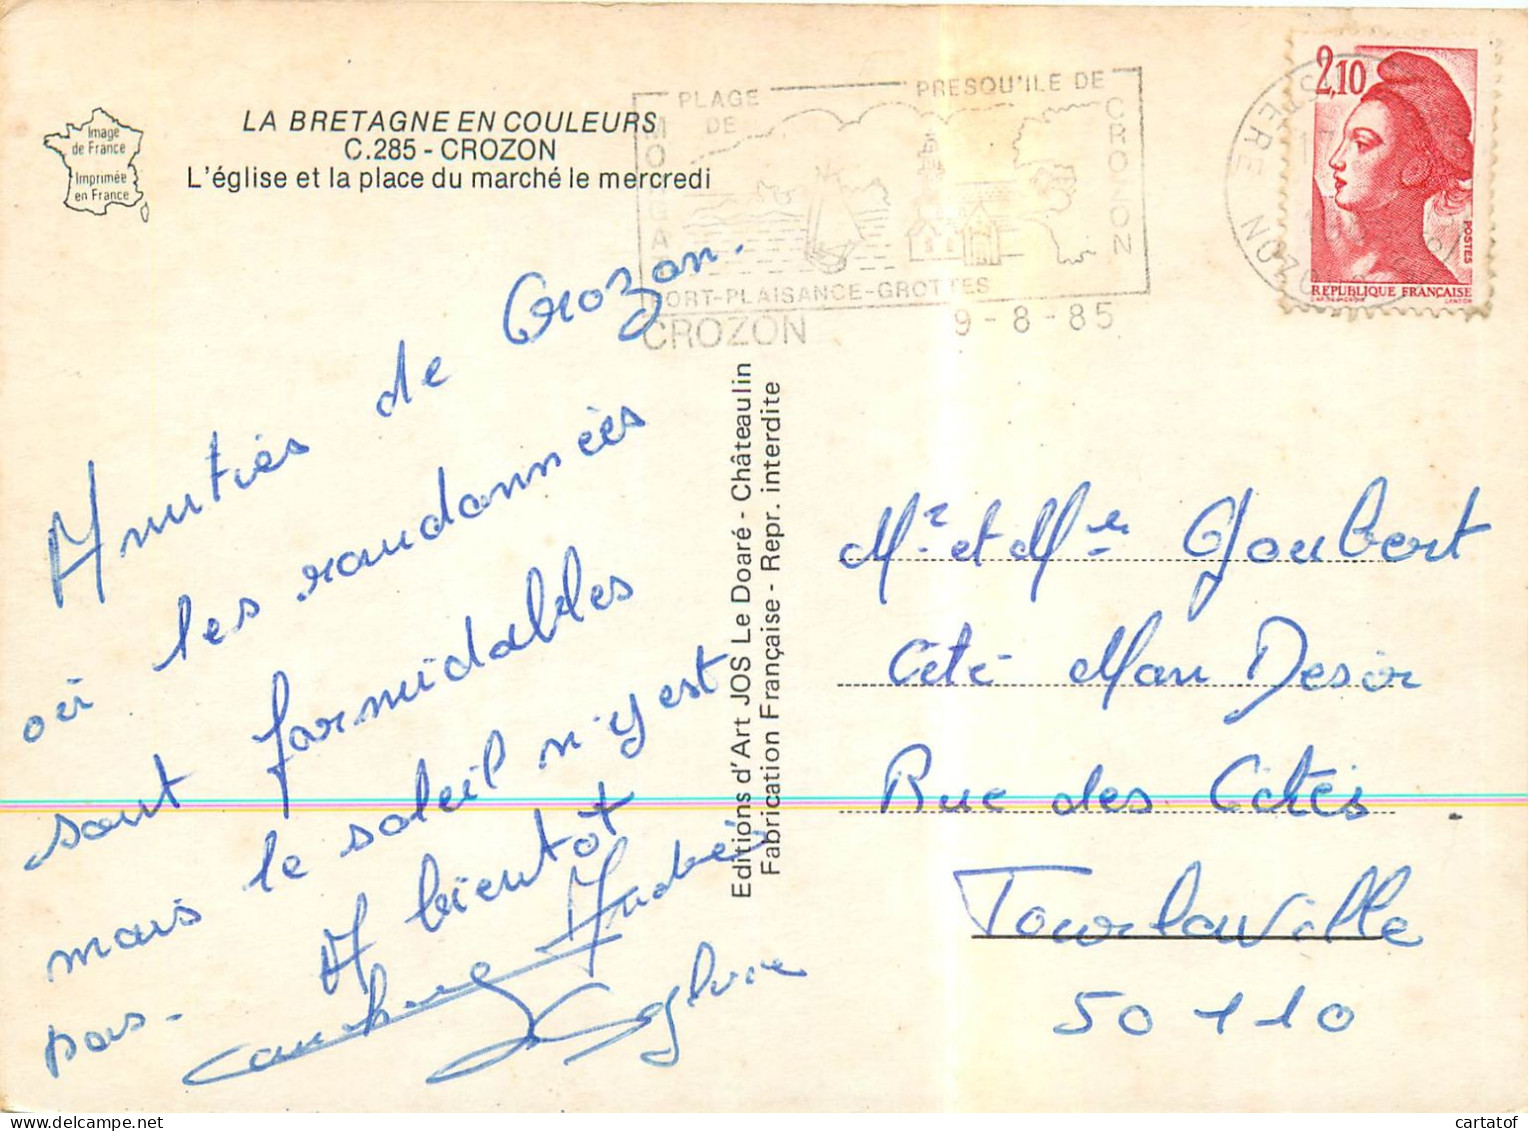 Image
de France
Imprimée
en France
LA BRETAGNE EN COULEURS
C.285 - CROZON
L'église et la place du marché le mercredi
PLAGE
DE
MORGAT
PRESQU'ILE DE
CROZON
PORT-PLAISANCE-GROTTES
CROZON
9-8-85
2,10
POSTES
REPUBLIQUE FRANÇAISE
Amitiés de Crozon.
où les randonnées
sont formidables
mais le soleil n'y est
pas. A bientôt
Andrée
Sylvie
Editions d'Art JOS Le Doaré - Châteaulin
Fabrication Française - Repr. interdite
Mr et Mme Joubert
Cité Mon Desir
Rue des Cités
Tourlaville
50110
cartatof